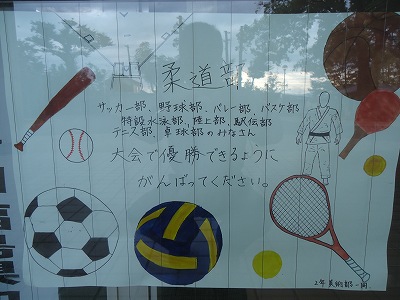 柔道部
サッカー部、野球部、バレー部、バスケ部
特設水泳部、陸上部、駅伝部
テニス部、卓球部のみなさん
大会で優勝できるように
がんばってください。
2年 美術部一同